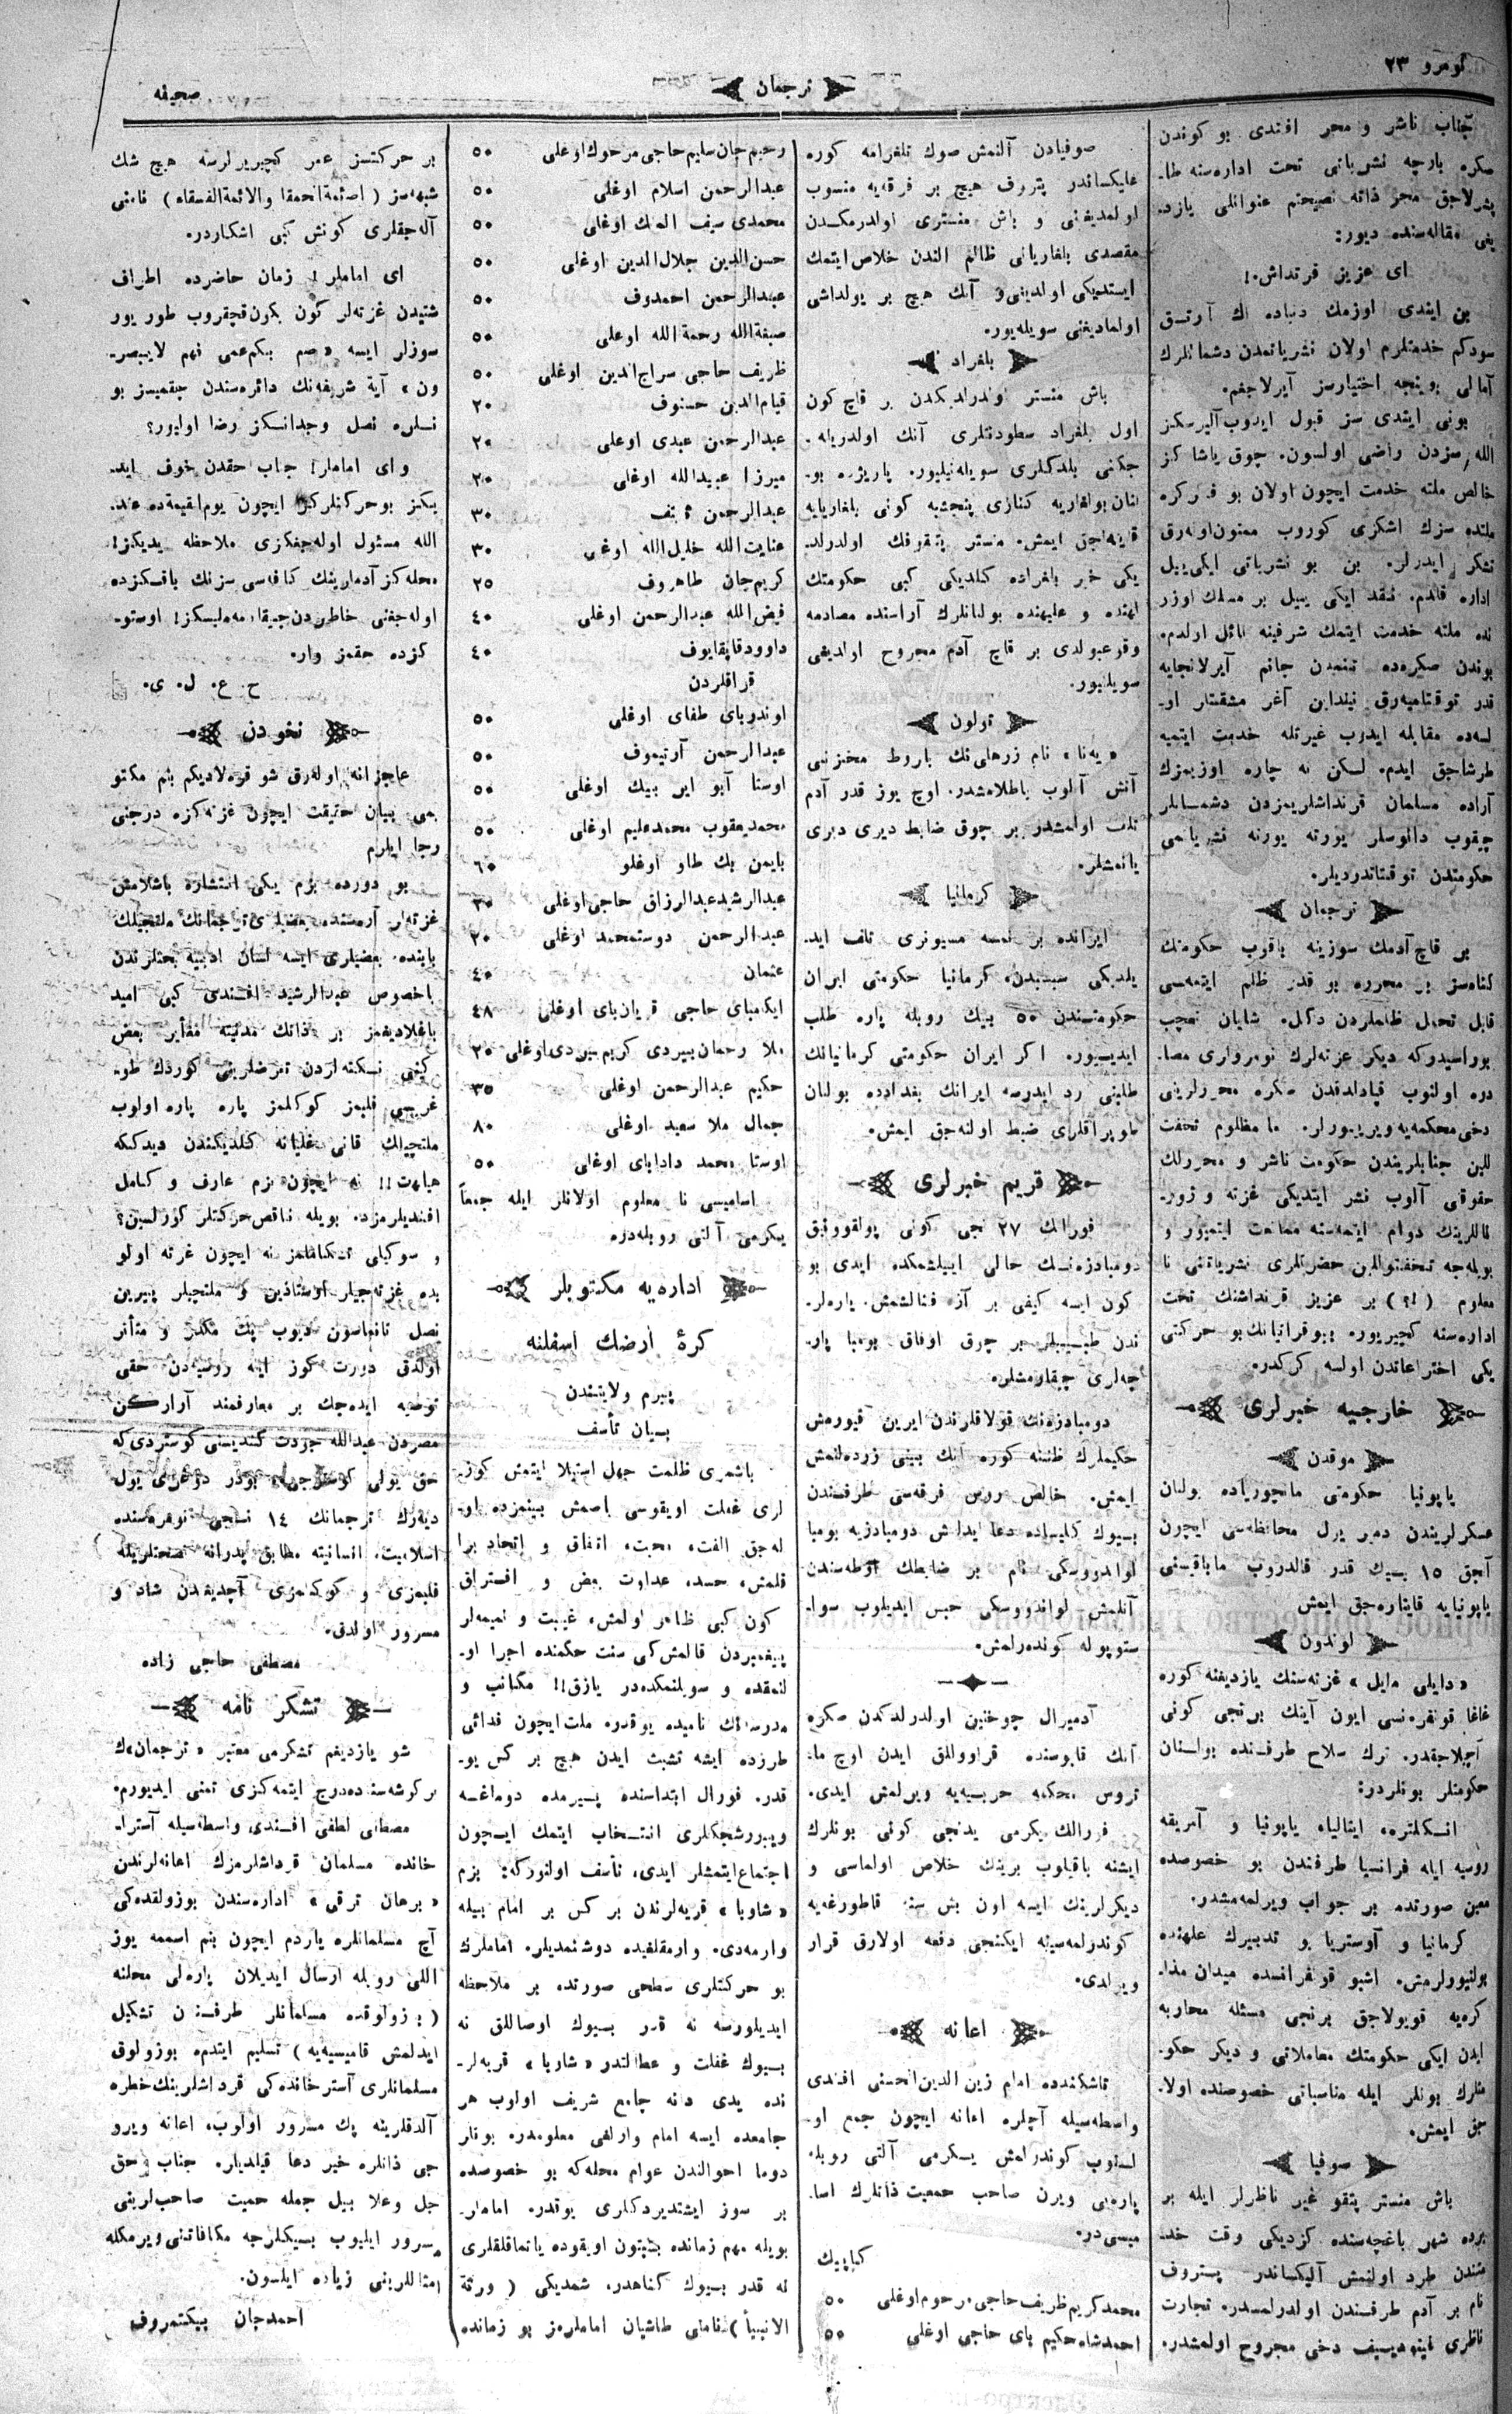 نومرو ٢٣
ترجمان
صحيفه
جناب ناشر و محرر افندی بو كوندن
صكره بارچه نشرياتی تحت اداره‌سنه طا-
پشرلاجق محرر ذاته نصيحتم عنوانلی يازد-
يغی مقاله‌سنده ديور:
ای عزيز قرتداش!
بن ايندی اوزمك دنياده اك آرتـق
سودكم خدمتلرم اولان نشرياتمدن دشمانلرك
آمالی بوينجه اختيارسز آيرلاجغم.
بونی ايندی سز قبول ايدوب آليرسكز
الله سزدن راضی اولسون. چوق ياشاكز
خالص ملته خدمت ايچون اولان بو فكركره
ملتده سزك اشكری كوروب ممنون اوله‌رق
تشكر ايدرلر. بن بو نشرياتی ايكی ييل
اداره قلدم. نقد ايكی ييل بر مسلك اوزر
نده ملته خدمت ايتمك شرفينه نائل اولدم.
بوندن صكره‌ده تنمدن جانم آيرلانجايه
قدر توقتاميه‌رق نيلداين آغر مشقتلر او-
لسه‌ده مقابله ايدوب غيرتله خدمت ايتميه
طرشاجق ايدم. لسكن نه چاره اوزيمزك
آراده مسلمان قرنداشلريمزدن دشمـانلر
چيقوب دانوسلر يورته يورته نشرياتمی
حكومتدن توقتاتدورديلر.
ترجمان
بر قاچ آدمك سوزينه باقوب حكومتك
كناه‌سز بر محرره بو قدر ظلم ايتمه‌سی
قابل تحمل ظلملردن دكل. شايان تعجب
بوراسيدوكه ديكر غزته‌لرك نومرواری مصا-
دره اولنوب قپادلدقدن صكره محررلرينی
دخی محكمه‌يه ويريورلر. ما مظلوم تحفت
اللين جنابلريندن حكومت ناشر و محررلك
حقوقی آلوب نشر ايتديكی غزته و ژور-
ناللرينك دوام ايتمه‌سنه ممانعت ايتميور و
بويله‌جه تحفتواللين حضرتلری نشرياتنی نا
معلوم (!؟) بر عزيز قرنداشنك تحت
اداره‌سنه كچيريور. بيوقراتيانك بو حركتی
يكی اختراعاتدن اولسه كركدر.
خارجيه خبرلری
موقدن
ياپونيا حكومتی مانچورياده بولنان
عسكرلريندن دمر يول محافظه‌سی ايچون
آنجق ١٥ بيـك قدر قالدروب ماباقيسنی
ياپونيايه قايتاره‌جق ايمش
لوندون
«دايلی مايل» غزته‌سنك يازديغنه كوره
غاغا قونفره‌نسی ايون آينك برنجی كونی
آچيلاجقدر. ترك سلاح طرفـنده بولـنان
حكومتلر بونلردر:
انـكلتره، ايتاليا، ياپونيا و آمريقه
روسيه ايله فرانسيا طرفندن بو خصوصده
معين صورتده بر جواب ويرلمه‌مشدر.
كرمانيا و آوستريا بو تدبيرك علهنده
بولنيورلرمش. اشبو قونفرانسده ميدان مذا-
كره‌يه قويولاجق برنجی مسئله محاربه
ايدن ايكی حكومتك معاملاتی و ديكر حكو-
متلرك بونلر ايله مناسباتی خصوصنده اولا-
جق ايمش.
صوفيا
باش منستر پتقو غير ناظرلر ايله بر
برده شهر باغچه‌سنده كزديكی وقت خد-
متندن طرد اولنمش آليكساندر پستروف
نام بر آدم طرفسندن اولدرلمسدر. تجارت
ناظری دخی مجروح اولمشدر.
صوفيادن آلنمش صوك تلغرامه كوره
عليكساندر پتروف هيچ بر فرقه‌يه منسوب
اولمديغنی و باش منستری اولدرمكـدن
مقصدی بلغاريانی ظالم الندن خلاص ايتمك
ايستديكی اولدينی و آنك هيچ بر يولداشی
اولماديغنی سويله‌يور.
بلغراد
باش منستر اولدرلديكدن بر قاچ كون
اول بلغراد سطودنتلری آنك اولدريله-
جكنی بلدكلری سويله‌نيليور. پاريژده بو-
لنان بولغاريه كنازی پنجشنبه كونی بلغاريايه
قاينه‌جق ايمش. منستر پتقوفك اولدرلد-
يكی خبر بلغراده كلديكی كبی حكومتك
لهنده و عليهنده بولنانلرك آراسنده مصادمه
وقوعبولدی بر قاچ آدم مجروح اولديغی
سويلنيور.
تولون
«يه‌نا» نام زرهلی‌نك باروط مخزنـی
آتش آلوب باطلامشدر. اوچ يوز قدر آدم
تلف اولمشدر بر چوق ضابط ديری ديری
يانمشلر.
كرمانيا
ايرانده بر نمسه مسيونری تلف ايد-
يلديكی سببندن، كرمانيا حكومتی ايران
حكومتـندن ٥٠ بيك روبله پاره طلب
ايديـيور. اكر ايران حكومتی كرمانيانك
طلبنی رد ايدرسه ايرانك بغدادده بولنان
طوپراقلری ضبط اولنه‌جق ايمش.
قريم خبرلری
فورالك ٢٧ نجی كونی پولقوونيق
دومبادزه‌نك حالی ايييلشمكده ايدی بو
كون ايسه كيفی بر آز فنالشمش. ياره‌لر-
ندن طبيبـلر بر چوق اوفاق بومبا پار-
چه‌لری چيقارمشلر.
دومبادزه‌نك قولاقلرندن ايرين قيورمش
حكيملرك ظننه كوره آنك بينی زرده‌لنمش
ايمش. خالص روس فرقه‌سی طرفـندن
بـيوك كليساده دعا ايدلش دومبادزيه بومبا
لواندووسكی نام بر ضابطك اوطه‌سندن
آتلمش لواندووسكی حبس ايديلوب سوا-
ستوپوله كونده‌رلمش.
آدميرال چوخنين اولدرلدكدن صكره
آنك قاپوسنده قراووللق ايدن اوچ ما-
تروس محكمه حربيه‌يه ويرلمش ايدی.
فورالك يكرمی يدنجی كونی بونلرك
ايشنه باقيلوب برينك خلاص اولماسی و
ديكرلرينك ايسه اون بش سنه قاطورغه‌يه
كوندرلمه‌سينه ايكنجی دفعه اولارق قرار
ويرلدی.
اعانه
تاشكندده امام زين الدين الحسنی افندی
واسطه‌سيله آچلره اعانه ايچون جمع او-
لـنوب كوندرلمش يـكرمی آلتی روبله
پاره‌يی ويرن صاحب حميت ذاتلرك اسا-
ميسی‌در.
كپاييك
محمد كريم ظريف حاجی مرحوم اوغلی ٥٠
احمدشاه حكيم بای حاجی اوغلی ٥٠
رحيم جان سليم حاجی مرحوك اوغلی ٥٠
عبدالرحمن اسلام اوغلی ٥٠
محمدی سيف الملك اوغلی ٥٠
حسن‌الدين جلال‌الدين اوغلی ٥٠
عبدالرحمن احمدوف ٥٠
صبغةالله رحمة الله اوغلی ٥٠
ظريف حاجی سراج‌الدين اوغلی ٥٠
قيام‌الدين حسنوف ٢٠
عبدالرحمن عبدی اوغلی ٢٠
ميرزا عبيدالله اوغلی ٢٠
عبدالرحمن ٣٠
عنايت‌الله خليل‌الله اوغلی ٣٠
كريم‌جان طاهروف ٢٥
فيض‌الله عبدالرحمن اوغلی ٤٠
داوود قاپقايوف ٤٠
قزاقلردن
اوندوبای طفای اوغلی ٥٠
عبدالرحمن آرتيموف ٥٠
اوستا آبو اير بيك اوغلی ٥٠
محمديعقوب محمدعليم اوغلی ٥٠
بايمن بك طاو اوغلو ٦٠
عبدالرشيد عبدالرزاق حاجی اوغلی ٣٠
عبدالرحمن دوستمحمد اوغلی ٢٠
عثمان ٤٠
ايكمبای حاجی قربان‌بای اوغلی ٤٨
ملا رحمان‌بيردی كريم‌بيردی اوغلی ٢٠
حكيم عبدالرحمن اوغلی ٣٥
جمال ملا سعيد اوغلی ٨٠
اوستا محمد دادابای اوغلی ٥٠
اساميسی نا معلوم اولانلر ايله جمعاً
يكرمی آلتی روبله‌در.
اداره‌يه مكتوبلر
كرۀ ارضك اسفلنه
پيرم ولايتندن
بـيان تأسف
باشمری ظلمت جهل استيلا ايتمش كوز-
لری غفلت اويقوسی باصمش بينمزده او-
له‌جق الفت، محبت، اتفاق و اتحاد برا
قلمش، حسد، عداوت بغض و افـتراق
كون كبی ظاهر اولمش، غيبت و نميمه‌لر
پيغمبردن قالمش كی سنت حكمنده اجرا او-
لنمقده و سويلنمكده‌در يازق!! مكاتب و
مدرسه‌لك ناميده يوقدر. ملت ايچون فدائی
طرزده ايشه تشبث ايدن هيچ بر كس يو-
قدر. فورال ابتداسنده پـيرمده دوماغـه
ويبورشچكلری انتـخاب ايتمك ايـچون
اجتماع ايتمشلر ايدی، تأسف اولنور كه: بزم
«شاويا» قريه‌لرندن بر كس بر امام بيله
وارمه‌دی. وارمقلغيده دوشنمديلر. اماملرك
بو حركتلری سطحی صورتده بر ملاحظه
ايديلورسه نه قدر بـيوك اوصاللق نه
بـيوك غفلت و عطالتدر «شاويا» قريه‌لر-
نده يدی دانه جامع شريف اولوب هر
جامعده ايسه امام وارلغی معلومدر. بونلر
دوما احوالندن عوام محله‌كه بو خصوصده
بر سوز ايشتديردكلری يوقدر. اماملر-
بويله مهم زمانده بتبتون اويقوده ياتماقلقلری
نه قدر بـيوك كناهدر. شمديكی (ورثة
الانبيأ) نامنی طاشيان اماملرمز بو زمانده
بر حركتسز عمر كچيريرلرسه هيچ شك
شبهه‌سز (ائمة‌الحمقا والائمة‌الفسقاء) نامنی
آله‌جقلری كونش كبی اشكاردر.
ای اماملر! زمان حاضرده اطراف
شتيدن غزته‌لر كون بكون قچقروب طوريور
سوزلر ايسه «صم بكم‌عمی فهم لايبصر-
ون» آية شريفه‌نك دائره‌سندن چيقميسز بو
نسلره نصل وجدانـكز رضا اوليور؟
وای اماملر! جناب حقدن خوف ايد-
يكنز بوحركتلركز ايچون يوم‌القيمه‌ده عند-
الله مسئول اوله‌جغكزی ملاحظه يديكز!
محله‌كز آدملرينك كافه‌سی سزنك باقـكزده
اوله‌جغنی خاطردن چيقارمه‌ملیسكز! اوستو-
كزده حقمز وار.
ح. ع. ل. ی.
نخودن
عاجزانه اوله‌رق شو قره‌لاديكم بنم مكتو
بمی بيان حقيقت ايچون غزته‌كزه درجنی
رجا ايلرم
بو دورده بزم يكی انتشاره باشلامش
غزته‌لر آرەسنده بعضيلری ترجمانك ملتجيلك
بابنده، بعضيلری ايسه لسان ادبيه بحثلرندن
باخصوص عبدالرشيد افـندی كبی اميد
باغلاديغمز بر ذاتك مدنيته مغاير بعض
كسی نـكته‌لردن تعرضلرينی كوردك طو-
غريسی قلبمز كوكلمز پاره پاره اولوب
ملتچيلك قانی غليانه كلديكندن ديدككه
هيهات!! نه ايچون بزم عارف و كامل
افنديلرمزده بويله ناقص حركتلر كورلسين؟
و سوكيلی نه ايچون غزته اولو
بده غزته‌جيلر اوستاذين و ملتجيلر پيرين
نصل تانماسون ديوب پك مكدر و متأثر
اولدق دورت كوز ايله روسيه‌دن حقی
توصيه ايده‌جك بر معارفمند آراركن
مصردن عبدالله جودت كنديسنی كوستردی‌كه
حق يولی كوستره‌جی بودر دوغری يول
ديه‌رك ترجمانك ١٤ نـجی نومره‌سنده
اسلاميت، انسانيته مطابق پدرانه نصحتلريله
قلبمزی و كوكلمزی آچديغندن شاد و
مسرور اولدق.
مصطفی حاجی زاده
تشكر نامه
شو يازديغم تشكرمی معتبر «ترجمان»ك
بر كوشه‌سنده درج ايتمه‌كزی تمنی ايديورم.
مصطفی لطفی افـندی واسطه‌سيله آسترا-
خانده مسلمان قرداشلرمزك اعانه‌لرندن
«برهان ترقی» اداره‌سندن بوزولقده‌كی
آچ مسلمانلره ياردم ايچون بنم اسممه يوز
اللی روبله ارسال ايديلان پاره‌لی محلنه
(بوزولوقده مسلمانلر طرفـندن تشكيل
ايدلمش قاميسيه‌يه) تسليم ايتدم، بوزولوق
مسلمانلری آسترخانده‌كی قرداشلرينك خطره
آلدقلرينه پك مسرور اولوب، اعانه ويرو
جی ذاتلره خير دعا قيلديلر. جناب حق
جل وعلا بيل جمله حميت صاحب‌لرينی
مسرور ايليوب بـيكلرجه مكافاتنی ويرمكله
امثاللرينی زياده ايلسون.
احمدجان بيكتمروف